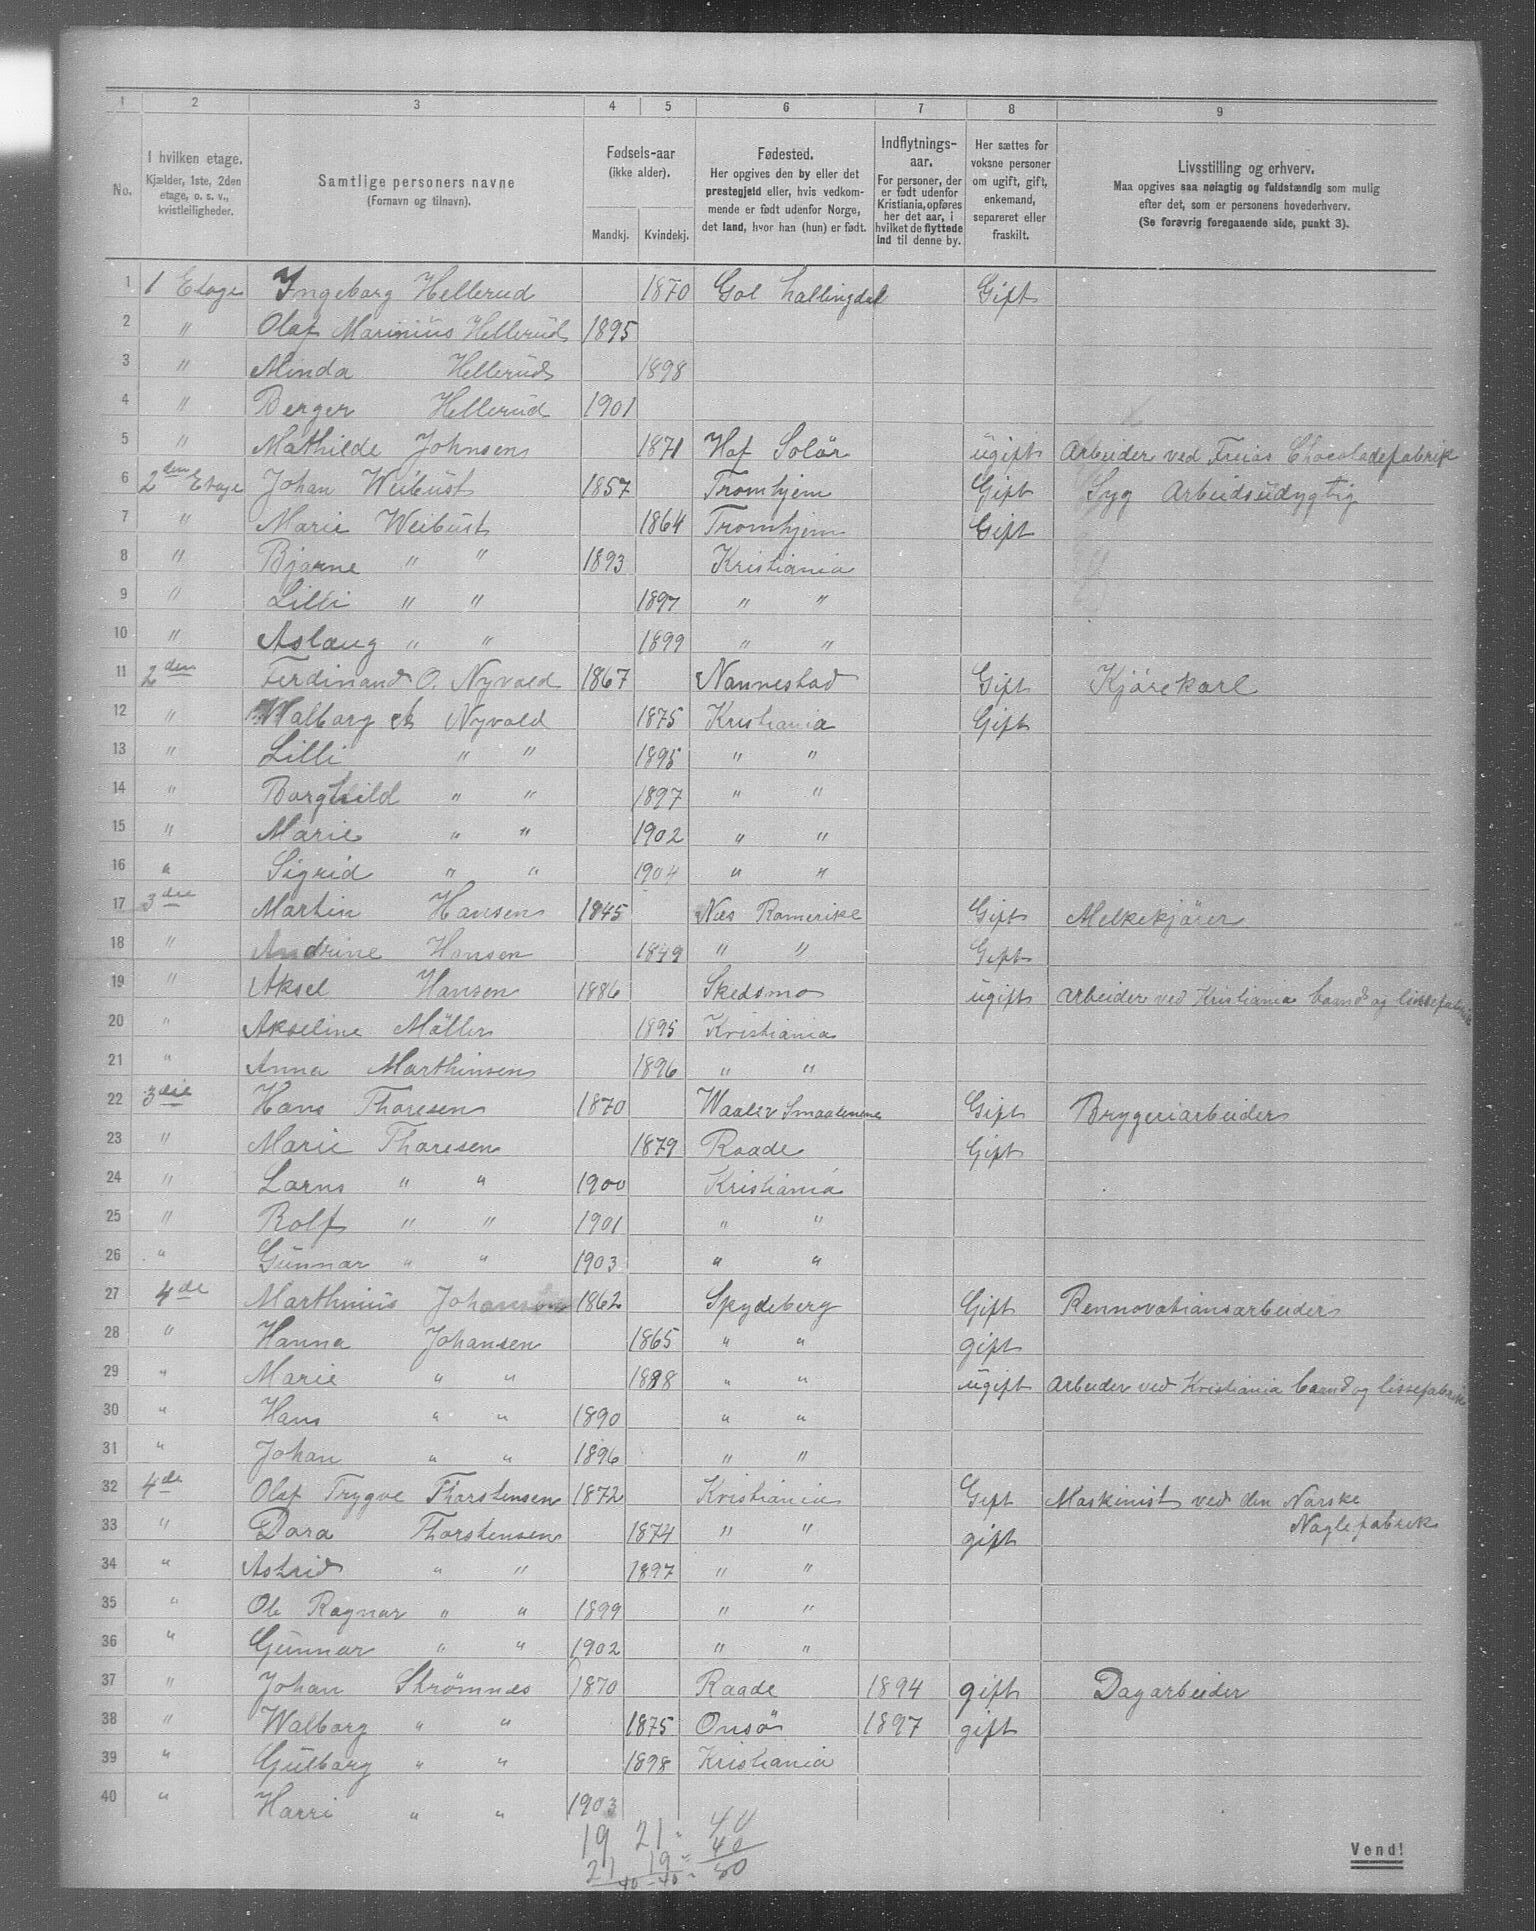 1 2 3 4 5 6 7 8 9
No. I hvilken etage. Kjælder, 1ste, 2den etage, o. s. v., kvistleiligheder. Samtlige personers navne (Fornavn og tilnavn). Fødsels-aar (ikke alder). Mandkj. Kvindekj. Fødested. Her opgives den by eller det prestegjeld eller, hvis vedkommende er født udenfor Norge, det land, hvor han (hun) er født. Indflytnings-aar. For personer, der er født udenfor Kristiania, opføres her det aar, i hvilket de flyttede ind til denne by. Her sættes for voksne personer om ugift, gift, enkemand, separeret eller fraskilt. Livsstilling og erhverv. Maa opgives saa nøiagtig og fuldstændig som mulig efter det, som er personens hovederhverv. (Se forøvrig foregaaende side, punkt 3).
1 1 Etage Ingeborg Hellerud 1870 Gol Hallingdal Gift
2 " Olaf Marinius Hellerud 1895
3 " Minda Hellerud 1898
4 " Berger Hellerud 1901
5 " Mathilde Johnsen 1871 Hof Solör ugift Arbeider ved Freias Chocoladefabrik
6 2den Etage Johan Weibust 1857 Tromhjem Gift Syg Arbeidsudygtig
7 " Marie Weibust 1864 Tromhjem Gift
8 " Bjarne " " 1893 Kristiania
9 " Lilli " " 1897 " "
10 " Aslaug " " 1899 " "
11 2den Ferdinand O. Nyvold 1867 Nannestad Gift Kjörekarl
12 " Walborg Nyvold 1875 Kristiania Gift
13 " Lilli " " 1895 " "
14 " Borghild " " 1897 " "
15 " Marie " " 1902 " "
16 " Sigrid " " 1904 " "
17 3die Martin Hansen 1845 Næs Romerike Gift Melkekjörer
18 " Andrine Hansen 1849 " " Gift
19 " Aksel Hansen 1886 Skedsmo ugift Arbeider ved Kristiania baand og lissefabrik
20 " Akseline Möller 1895 Kristiania
21 " Anna Marthinsen 1896 " "
22 3die Hans Thoresen 1870 Waaler Smaalenene Gift Bryggeriarbeider
23 " Marie Thoresen 1879 Raade Gift
24 " Lorns " " 1900 Kristiania
25 " Rolf " " 1901 " "
26 " Gunnar " " 1903 " "
27 4de Marthinius Johansen 1862 Spydeberg Gift Rennovationsarbeider
28 " Hanna Johansen 1865 " " gift
29 " Marie " " 1888 " " ugift Arbeider ved Kristiania baand og lissefabrik
30 " Hans " " 1890 " "
31 " Johan " " 1896 " "
32 4de Olaf Trygve Thorstensen 1872 Kristiania Gift Maskinist ved den Norske
Naglefabrik
33 " Dora Thorstensen 1874 " " gift
34 " Astrid " " 1897 " "
35 " Ole Ragnar " " 1899 " "
36 " Gunnar " " 1902 " "
37 " Johan Strømnes 1870 Raade 1894 gift Dagarbeider
38 " Walborg " " 1875 Onsö 1897 gift
39 " Gulborg " " 1898 Kristiania
40 " Harri " " 1903
19 21 40
21 19 40
40 40 80
Vend!